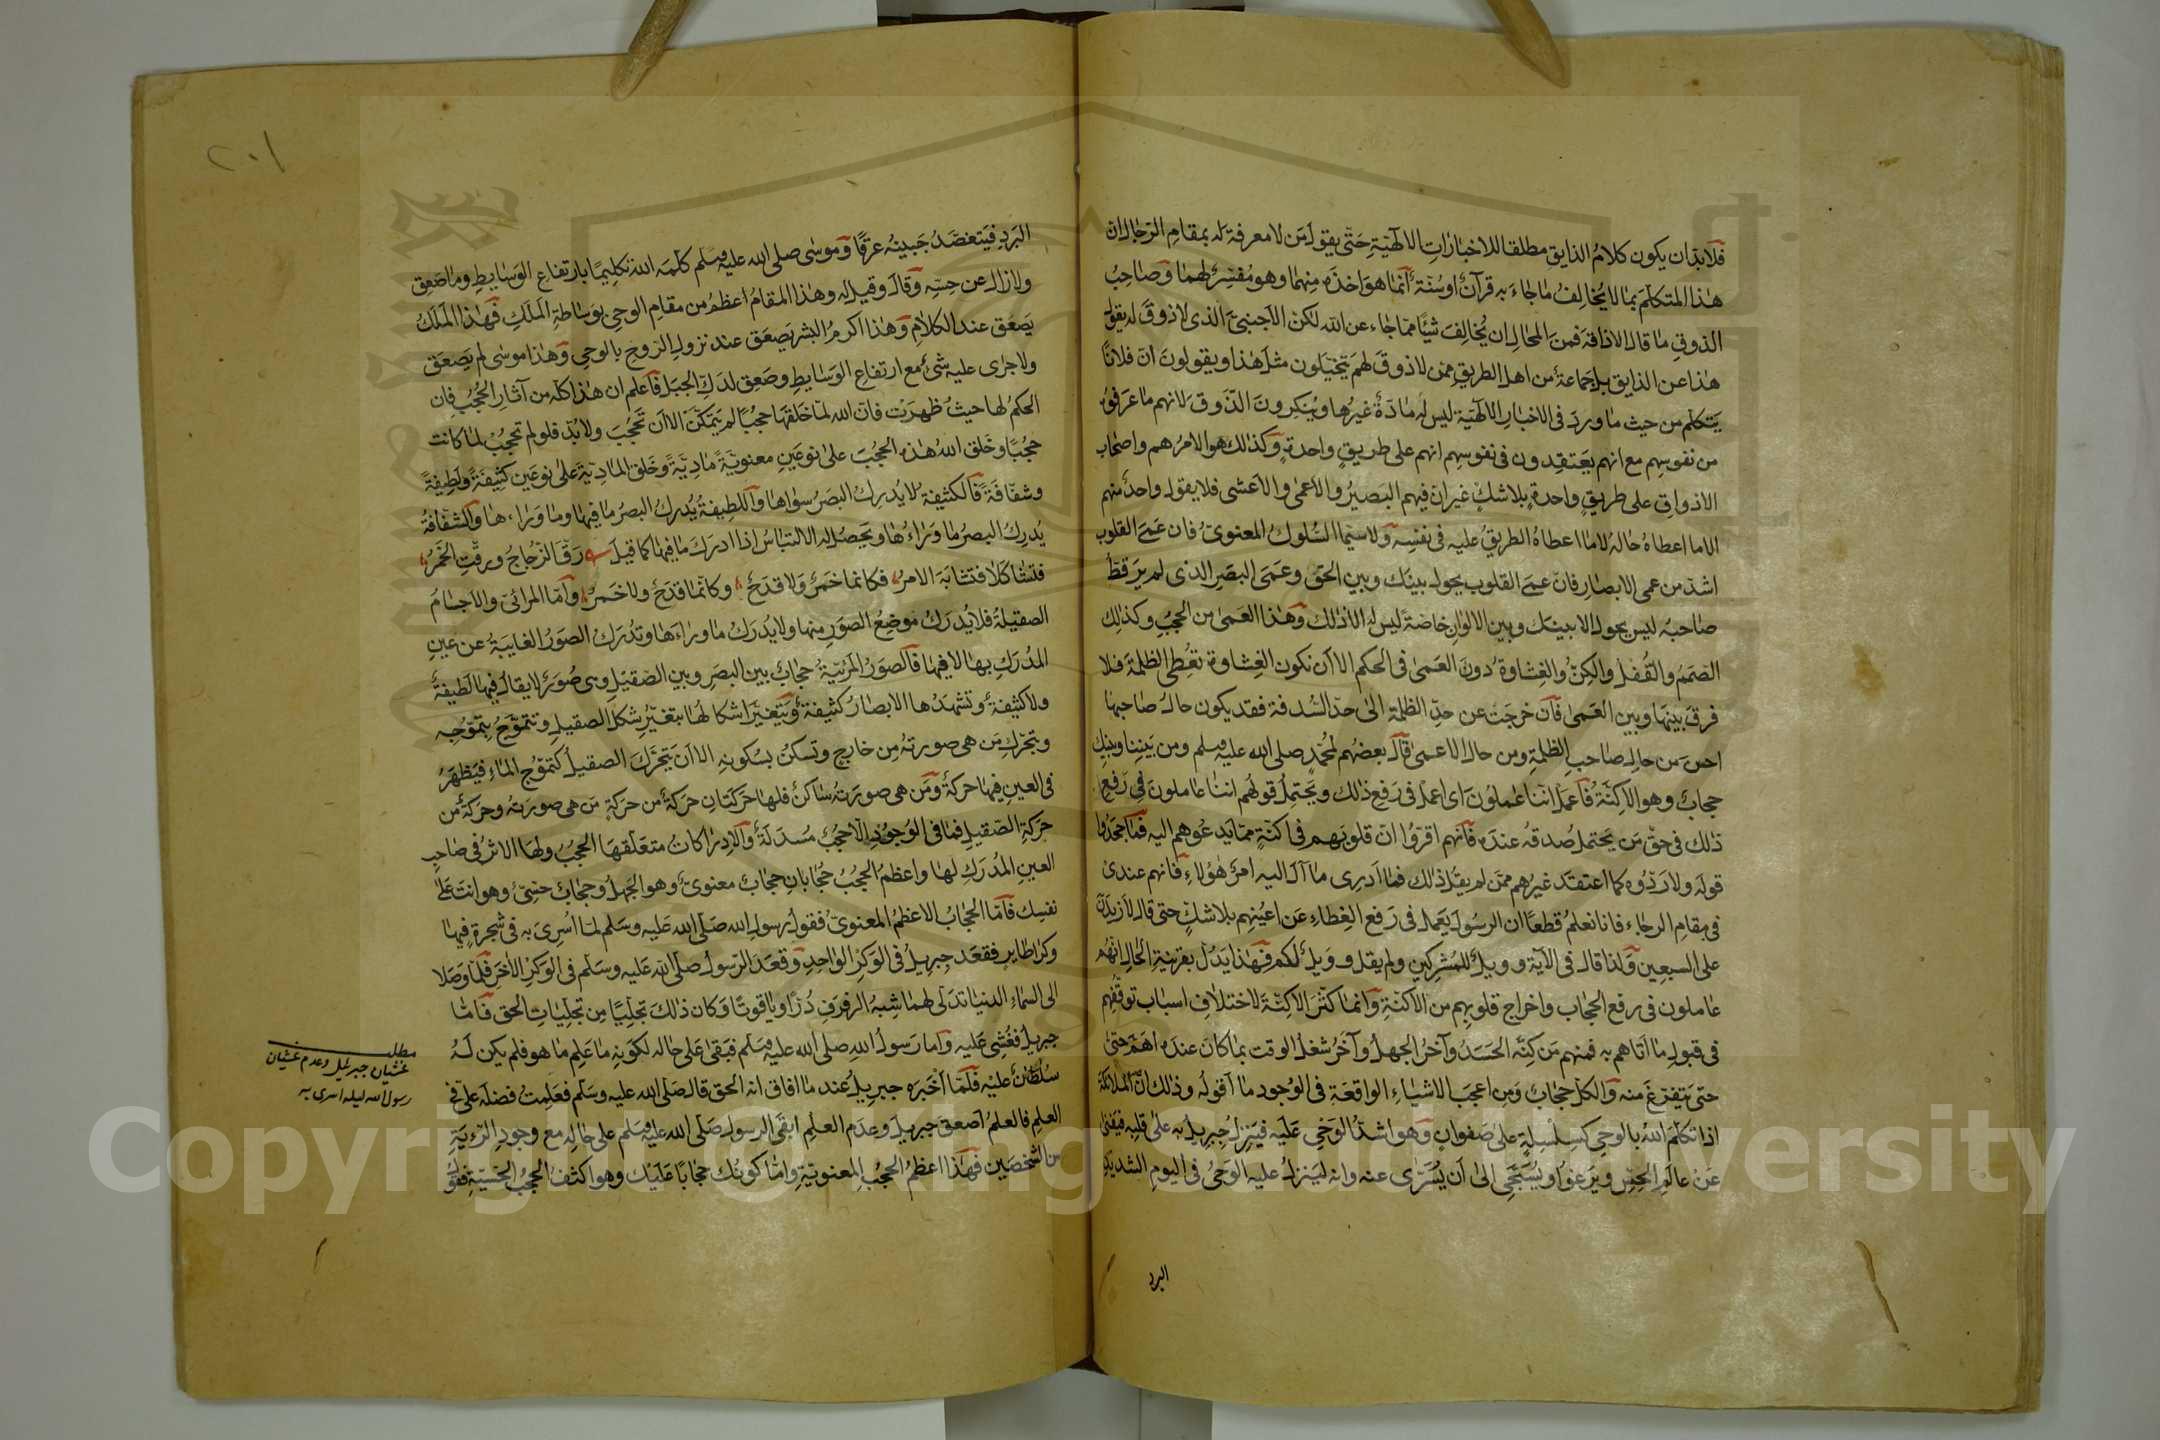 فلابد ان يكون كلام الذايق مطلقا للاخبارات الالهية حتى يقول من لا معرفة له بمقام الرجال ان
هذا المتكلم بما لا يخالف ما جاء به قرآن او سنة انما هو اخذه منهما وهو مفسر لهما وصاحب
الذوق ما قال الا ذاقه فمن المحال ان يخالف شيئا مما جاء عن الله لكن الاجنبى الذى لا ذوق له يقول
هذا عن الذايق بل جماعة من اهل الطريق ممن لا ذوق لهم يتخيلون مثل هذا ويقولون ان فلانا
يتكلم من حيث ما ورد فى الاخبار الالهية ليس له مادة غيرها وينكرون الذوق لانهم ما عرفوه
من نفوسهم مع انهم يعتقدون فى نفوسهم انهم على طريق واحدة وكذلك هو الامر هم واصحاب
الاذواق على طريق واحدة بلا شك غير ان فيهم البصير والاعمى والاعشى فلا يقول واحد منهم
الا ما اعطاه حاله لا ما اعطاه الطريق عليه فى نفسه ولا سيما السلوك المعنوى فان عمى القلوب
اشد من عمى الابصار فان عمى القلوب يحول بينك وبين الحق وعمى البصر الذى لم ير قط
صاحبه ليس يحول الا بينك وبين الالوان خاصة ليس له الا ذلك وهذا العمى من الحجب وكذلك
الصمم والقفل والكن والغشاوة دون العمى فى الحكم الا ان تكون الغشاوة تعطى الظلمة فلا
فرق بينها وبين العمى فان خرجت عن حد الظلمة الى حد السدفة فقد يكون حال صاحبها
احسن من حال صاحب الظلمة ومن حال الاعمى قال بعضهم لمحمد صلى الله عليه وسلم ومن بيننا وبينك
حجاب وهو الاكنة فاعمل اننا عاملون اى اعمل فى رفع ذلك ويحتمل قولهم اننا عاملون فى رفع
ذلك فى حق من يحتمل صدقه عنده فانهم اقروا ان قلوبهم فى اكنة مما يدعوهم اليه فما جحدوا
قوله ولا ردوه كما اعتقد غيرهم ممن لم يقل ذلك فما ادرى ما آل اليه امر هؤلاء فانهم عندى
فى مقام الرجاء فانا نعلم قطعا ان الرسول يعمل فى رفع الغطاء عن اعينهم بلا شك حتى قال لازيدن
على السبعين ولذا قال فى الآية وويل للمشركين ولم يقل وويل لكم فهذا يدل بقرينة الحال انهم
عاملون فى رفع الحجاب واخراج قلوبهم من الاكنة وانما كثر الاكنة لاختلاف اسباب توقفهم
فى قبول ما اتاهم به فمنهم من كنه الحسد وآخر الجهل وآخر شغل الوقت بما كان عنده اهم حتى
حتى يتفرغ منه والكل حجاب ومن اعجب الاشياء الواقعة فى الوجود ما اقوله وذلك ان الملائكة
اذا تكلم الله بالوحى كسلسلة على صفوان وهو اشد الوحى عليه فينزل جبريل به على قلبه فيفنى
عن عالم الحس ويرغوا ويسجى الى ان يسرى عنه وانه لينزل عليه الوحى فى اليوم الشديد
البرد
٢٠١
البرد فيتفصد جبينه عرقا وموسى صلى الله عليه وسلم كلمه الله تكليما بارتفاع الوسايط وما صعق
ولا زال عن حسه وقال وقيل له وهذا المقام اعظم من مقام الوحى بوساطة الملك فهذا الملك
يصعق عند الكلام وهذا اكرم البشر يصعق عند نزول الروح بالوحى وهذا موسى لم يصعق
ولا جرى عليه شئ مع ارتفاع الوسايط وصعق لدك الجبل فاعلم ان هذا كله من آثار الحجب فان
الحكم لها حيث ظهرت فان الله لما خلقها حجبا لم يتمكن الا ان تحجب ولا بد فلو لم تحجب لما كانت
حجبا وخلق الله هذه الحجب على نوعين معنوية مادية وخلق المادية على نوعين كثيفة ولطيفة
وشفافة فالكثيفة لا يدرك البصر سواها واللطيفة يدرك البصر ما فيها وما وراءها والشفافة
يدرك البصر ما وراءها ويحصل له الالتباس اذا ادرك ما فيها كما قيل رق الزجاج ورقت الخمر
فتشاكلا فتشابه الامر فكانما خمر ولا قدح وكانما قدح ولا خمر واما المرائى والاجسام
الصقيلة فلا يدرك موضع الصور منها ولا يدرك ما وراءها وتدرك الصور الغايبة عن عين
المدرك بها لا فيها فالصور المرئية حجاب بين البصر وبين الصقيل وهى صور لا يقال فيها لطيفة
ولا كثيفة وتشهدها الابصار كثيفة ويتغير اشكالها بتغير شكل الصقيل وتتموج بتموجه
وتتحرك من هى صورته من خارج وتسكن بسكونه الا ان يتحرك الصقيل كتموج الماء فيظهر
فى العين فيها حركة ومن هى صورته ساكن فلها حركتان حركة من حركة من هى صورته وحركة من
حركة الصقيل فما فى الوجود الا حجب مسدلة والادراكات متعلقها الحجب ولها الاثر فى صاحب
العين المدرك لها واعظم الحجب حجابان حجاب معنوى وهو الجهل وحجاب حسى وهو انت على
نفسك فاما الحجاب الاعظم المعنوى فقول رسول الله صلى الله عليه وسلم لما اسرى به فى شجرة فيها
وكرا طاير فقعد جبريل فى الوكر الواحد وقعد الرسول صلى الله عليه وسلم فى الوكر الاخر فلما وصلا
الى السماء الدنيا تدلى لهما شبه الرفرف درا وياقوتا وكان ذلك تجليا من تجليات الحق فاما
جبريل فغشى عليه واما رسول الله صلى الله عليه وسلم فبقى على حاله لكونه ما علم ما هو فلم يكن له
سلطان عليه فلما اخبره جبريل عند ما افاق انه الحق قال صلى الله عليه وسلم فعلمت فضله على فى
العلم فالعلم اصعق جبريل وعدم العلم ابقى الرسول صلى الله عليه وسلم على حاله مع وجود الرؤية
من الشخصين فهذا اعظم الحجب المعنوية واما كونك حجابا عليك وهو اكثف الحجب الحسية فقول
مطلب
غشيان جبرئيل وعدم غشيان
رسول الله ليلة اسرى به
Copyright © King Saud University